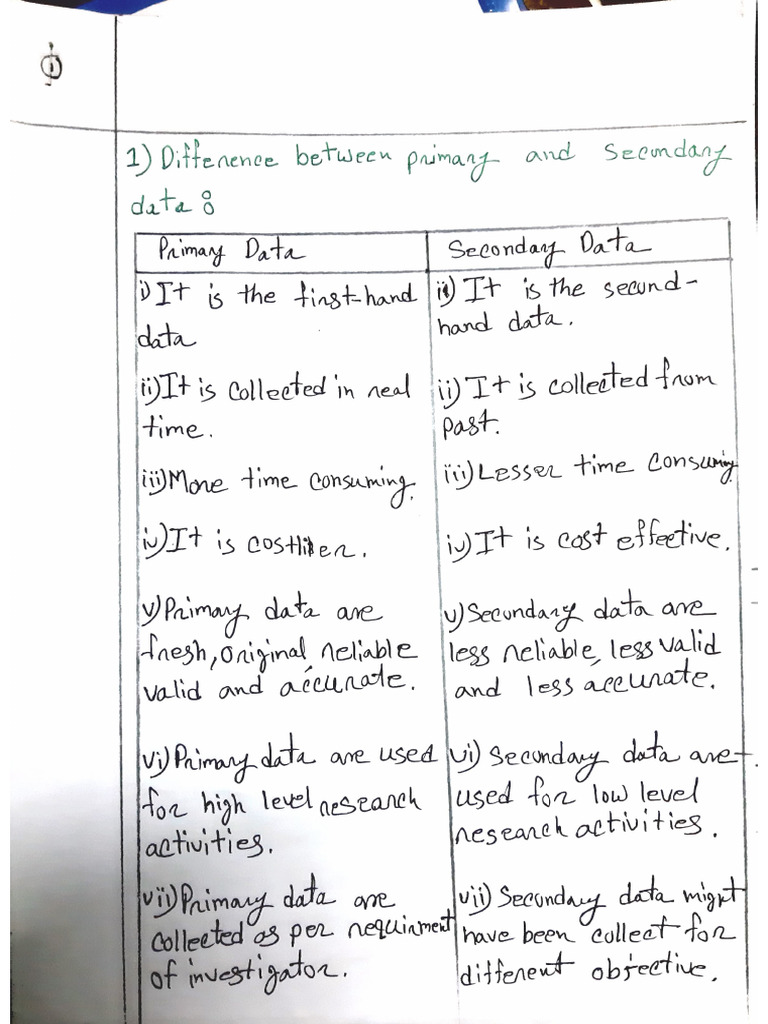 1) Difference between primary and secondary
data :
Primary Data
Secondary Data
i) It is the first-hand
data
ii) It is collected in real
time.
iii) More time consuming.
iv) It is costlier.
v) Primary data are
fresh, original, reliable
valid and accurate.
vi) Primary data are used
for high level research
activities.
vii) Primary data are
collected as per requirment
of investigator.
i) It is the second-
hand data.
ii) It is collected from
past.
iii) Lesser time consuming
iv) It is cost effective.
v) Secondary data are
less reliable, less valid
and less accurate.
vi) Secondary data are
used for low level
research activities.
vii) Secondary data might
have been collect for
different objective.